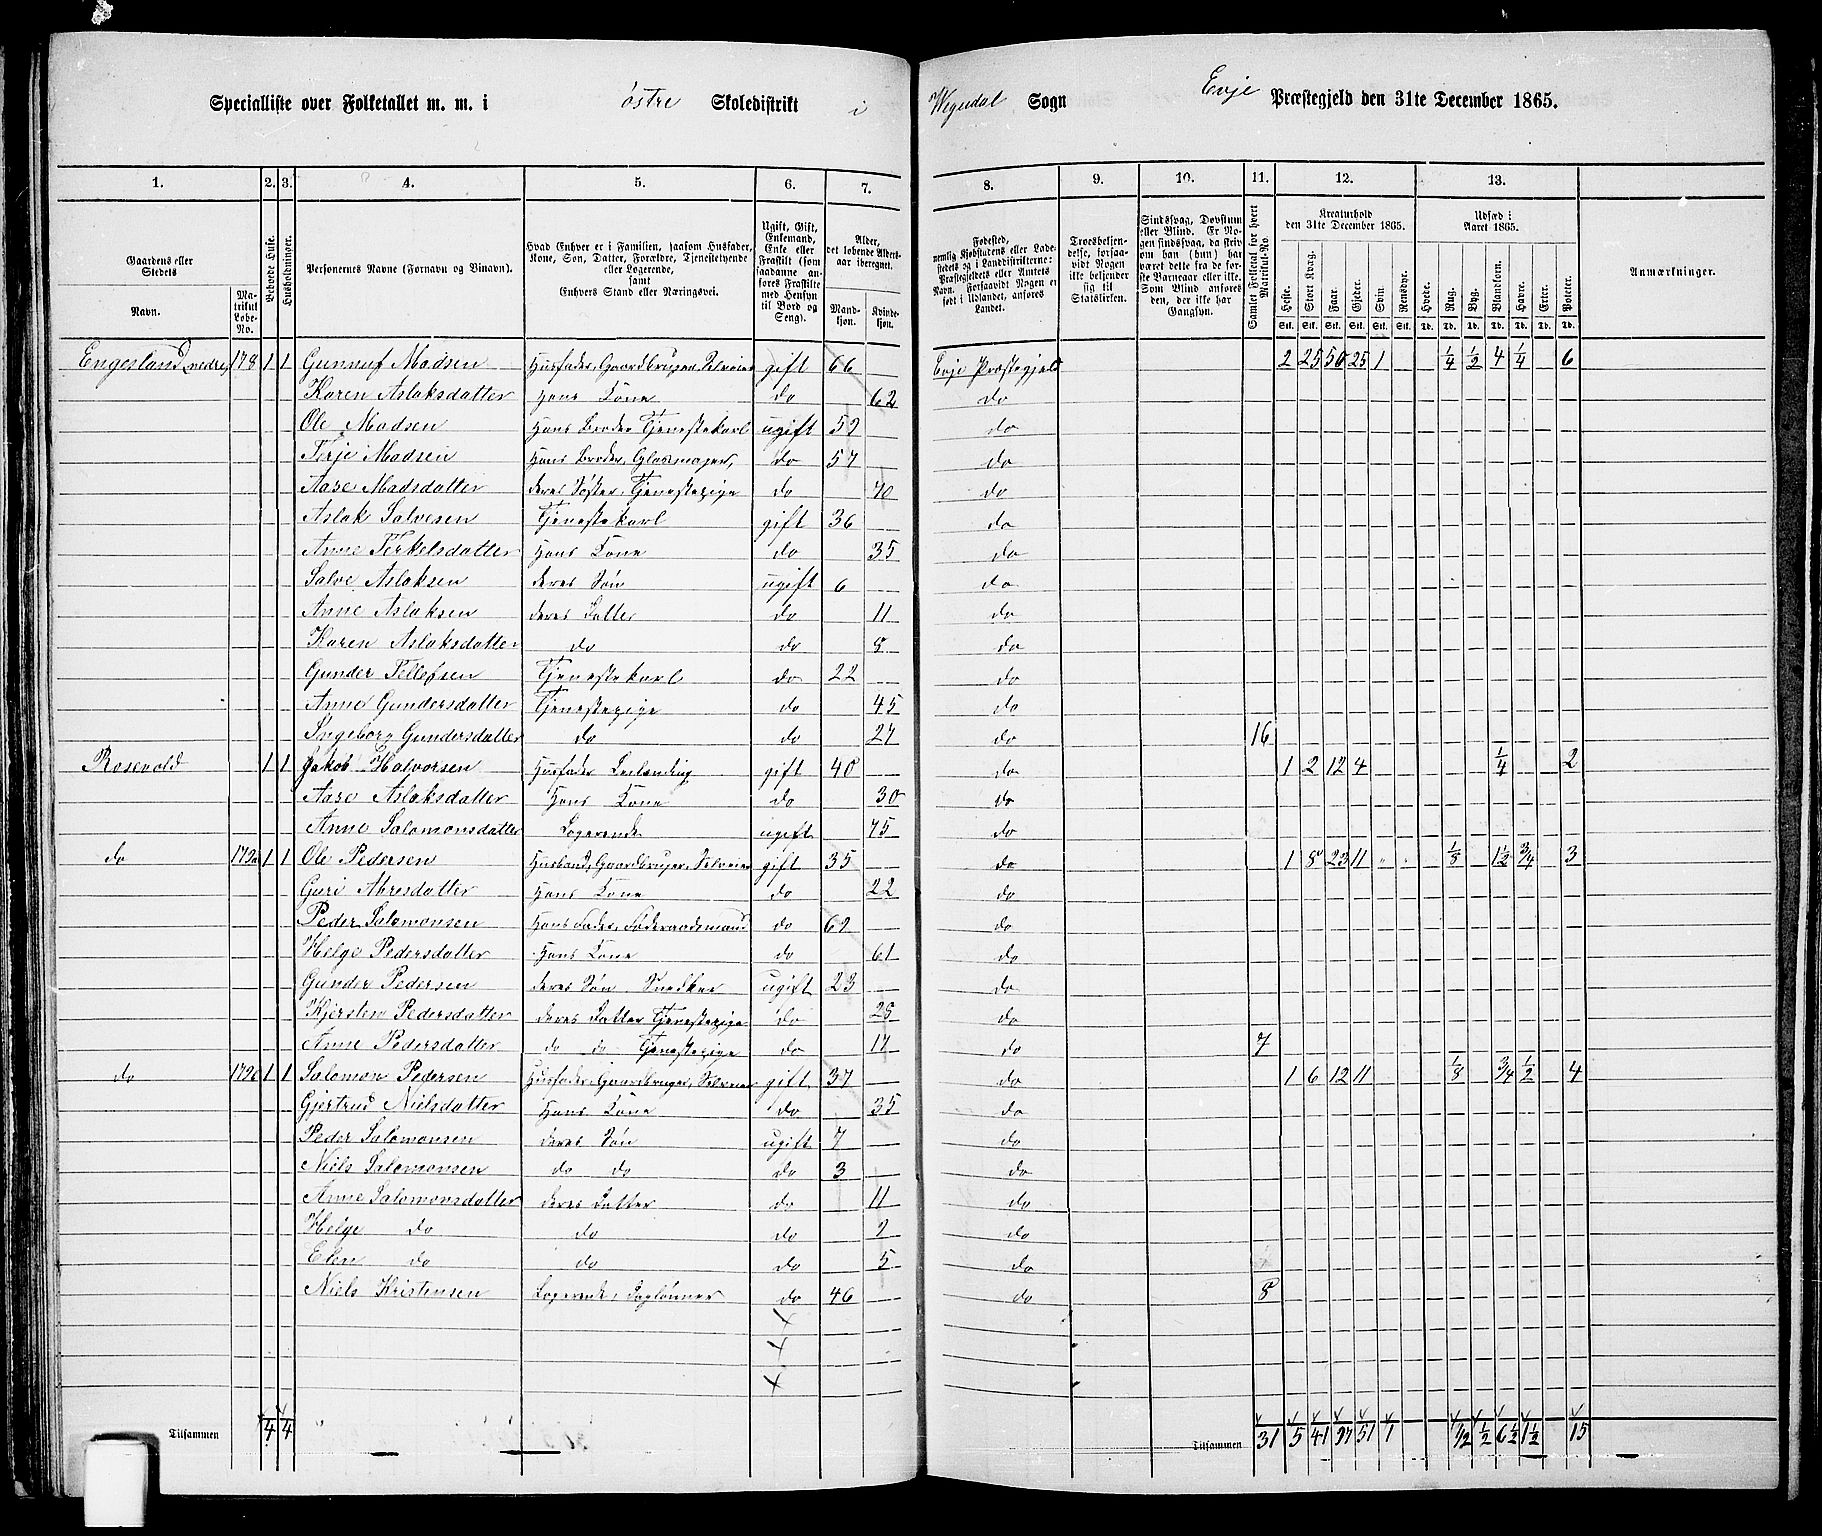 Specialliste over Folketallet m. m. i østre Skoledistrikt i Wegusdal Sogn Evje Præstegjeld den 31te December 1865.
1. 2. 3. 4. 5. 6. 7. 8. 9. 10. 11. 12. 13.
Gaardens eller Stedets Navn. Matrikul Løbe-No. Beboede Huse. Husholdninger. Personernes Navne (Fornavn og Vinavn).
Hvad Enhver er i Familien, saasom Husfader, Kone, Søn, Datter, Forældre, Tjenestetyende eller Logerende, samt Enhvers Stand eller Næringsvei.
Ugift, Gift, Enkemand, Enke eller Fraskilt (som saadanne anføres Fraskilte med Hensyn til Bord og Seng).
Alder, det løbende Alders-aar iberegnet. Mandkjøn. Kvindekjøn.
Fødested, nemlig Kjøbstadens eller Ladestedets og i Landdistrikterne: Præstegjeldets eller Amtets Navn. Forsaavidt Nogen er født i Udlandet, anføres Landet.
Troesbekjendelse, forsaavidt Nogen ikke bekjender sig til Statskirken.
Sindssvag, Døvstum eller Blind. Er Nogen sindssvag, da skrives om han (hun) har været dette fra de første Barneaar eller ikke. Som Blind anføres den, der ikke har Gangsyn.
Samlet Folketal for hvert Matrikul-No.
Kreaturhold den 31te December 1865. Heste. Stort Kvæg. Faar. Gjeder. Svin. Rensdyr.
Udsæd i Aaret 1865. Hvede. Rug. Byg. Blandkorn. Havre. Erter. Poteter.
Anmærkninger.
Engesland, nedre, 178 1 1 Gunnuf Madsen Husfader, Gaardbruger, Selveier gift 66 Evje Præstegjeld 2 25 50 25 1 1/4 1/2 4 1/4 6
Karen Aslaksdatter Hans Kone do 62 do
Ole Madsen Hans Broder Tjenestekarl ugift 59 do
Terje Madsen Hans Broder, Glasmager, do 57 do
Aase Madsdatter deres Søster, Tjenestepige do 70 do
Aslak Salvesen Tjenestekarl gift 36 do
Anne Terkelsdatter Hans Kone do 35 do
Salve Aslaksen deres Søn ugift 6 do
Anne Aslaksen deres Datter do 11 do
Karen Aslaksdatter do do 8 do
Gunder Tellefsen Tjenestekarl do 22 do
Anne Gundersdatter Tjenestepige do 45 do
Ingeborg Gundersdatter do do 27 do 16
Rosevold 1 1 Jakob Halvorsen Husfader gift 40 do 1 2 12 4 1/4 2
Aase Aslaksdatter Hans Kone do 30 do
Anne Salomonsdatter Logerende ugift 75 do
do 179a 1 1 Ole Pedersen Husband, Gaardbruger, Selveier gift 35 do 1 8 23 11 " " 1/8 1 1/2 3/4 3
Guri Ahresdatter Hans Kone do 22 do
Peder Salomonsen Hans Fader, Føderaadsmand do 69 do
Helge Pedersdatter Hans Kone do 61 do
Gunder Pedersen deres Søn Snedker ugift 23 do
Kjersten Pedersdatter deres Datter Tjenestepige do 25 do
Anne Pedersdatter do do Tjenestepige do 17 do 7
do 179b 1 1 Salomon Pedersen Husfader, Gaardbruger, Selveier gift 37 do 1 6 12 11 1/8 3/4 1/2 4
Gjertrud Nielsdatter Hans Kone do 35 do
Peder Salomonsen deres Søn ugift 7 do
Niels Salomonsen do do do 3 do
Anne Salomonsdatter deres Datter do 11 do
Helge do do do 9 do
Elen do do do 5 do
Niels Kristensen Logerende, Daglønner do 46 do 8
Tilsammen 4 4
Tilsammen 31 5 41 97 51 1 1/2 1/2 6 1/2 1 1/2 15